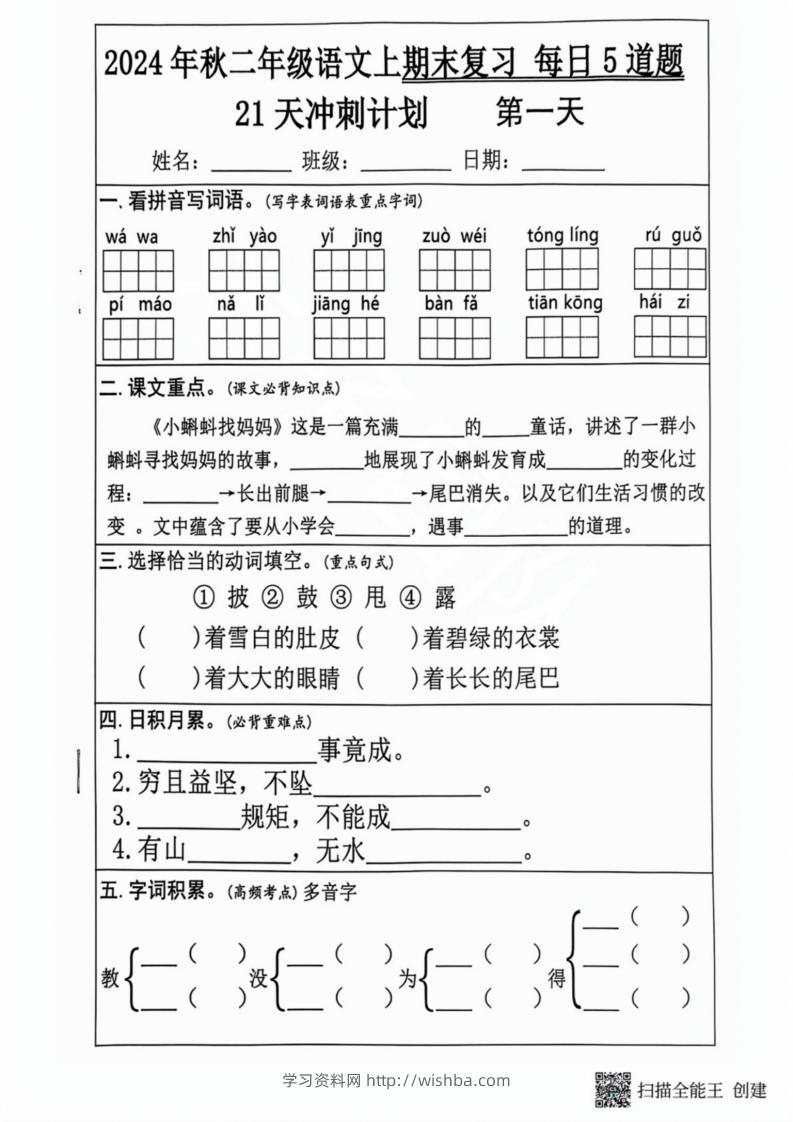 2024年秋二年级语文上期末复习 每日5道题
21天冲刺计划 第一天
姓名：______ 班级：______ 日期：______
一.看拼音写词语。(写字表词语表重点字词)
wá wa zhǐ yào yǐ jīng zuò wéi tóng líng rú guǒ
pí máo nǎ lǐ jiāng hé bàn fǎ tiān kōng hái zi
二.课文重点。(课文必背知识点)
《小蝌蚪找妈妈》这是一篇充满______的____童话，讲述了一群小
蝌蚪寻找妈妈的故事，______地展现了小蝌蚪发育成______的变化过
程：______→长出前腿→______→尾巴消失。以及它们生活习惯的改
变 。文中蕴含了要从小学会______，遇事________的道理。
三.选择恰当的动词填空。(重点句式)
① 披 ② 鼓 ③ 甩 ④ 露
( )着雪白的肚皮 ( )着碧绿的衣裳
( )着大大的眼睛 ( )着长长的尾巴
四.日积月累。(必背重难点)
1.____________事竟成。
2.穷且益坚，不坠____________。
3.________规矩，不能成__________。
4.有山________，无水____________。
五.字词积累。(高频考点)多音字
___( ) ___( ) ___( ) ___( )
教 没 为 得 ___( )
___( ) ___( ) ___( ) ___( )
学习资料网 http://wishba.com
扫描全能王 创建